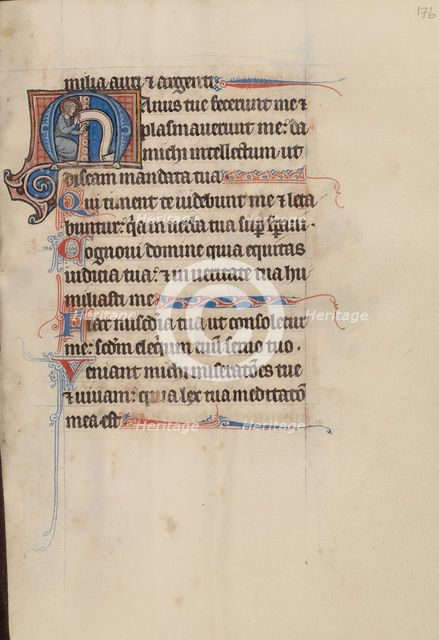 176
milia auri ⁊ argenti:
Manus tue fecerunt me ⁊
plasmaverunt me: da
michi intellectum ut
discam mandata tua
Qui timent te videbunt me ⁊ leta
buntur: q̄a in verba tua sup̄ sp̄avi.
Cognovi domine quia equitas
iudicia tua: ⁊ in veritate tua hu
miliasti me
Fiat mis̄dia tua ut consoletur
me: sc̄dm eloq̄ium tuū servo tuo.
Veniant michi miserat̄ones tue
⁊ vivam: quia lex tua meditat̄o
mea est
Heritage
Heritage
Heritage
Heritage
Heritage
Heritage